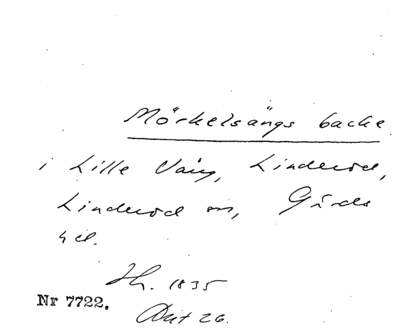 Mörkelsängs backe
i Lille Vång, Linderöd,
Linderöd sn, Gärds
hd.
Sk. 1835
Nr 7722. Akt 26.